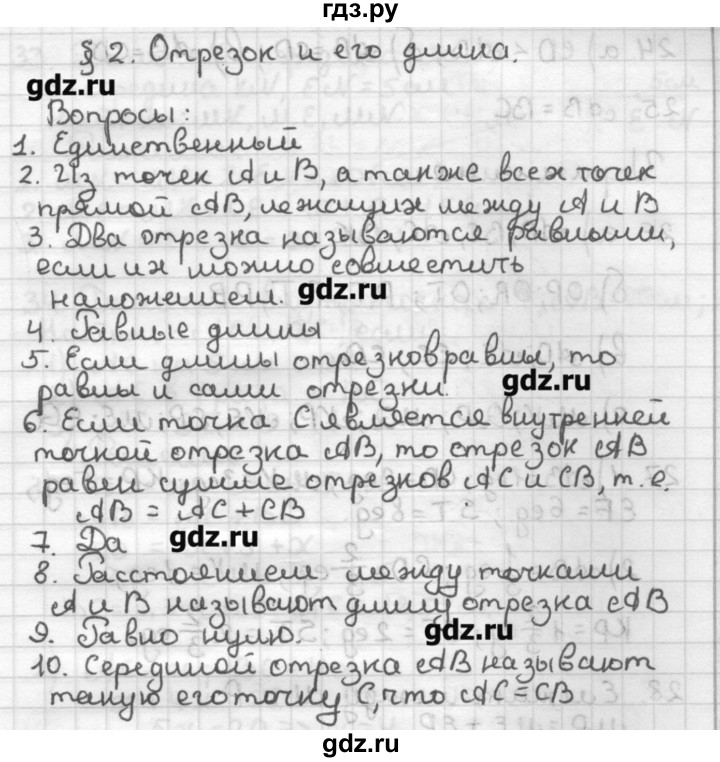 гдз.ру
§ 2. Отрезок и его длина.
gdz.ru
Вопросы:
1. Единственный
2. Из точек А и В, а также всех точек
прямой АВ, лежащих между А и В
3. Два отрезка называются равными,
если их можно совместить
наложением. gdz.ru
4. Равные длины
5. Если длины отрезков равны, то
равны и сами отрезки. gdz.ru
6. Если точка С является внутренней
точкой отрезка АВ, то отрезок АВ
равен сумме отрезков АС и СВ, т. е.
АВ = АС + СВ
7. Да gdz.ru
8. Расстоянием между точками
А и В называют длину отрезка АВ
9. Равно нулю. gdz.ru
10. Серединой отрезка АВ называют
такую его точку С, что АС = СВ
gdz.ru